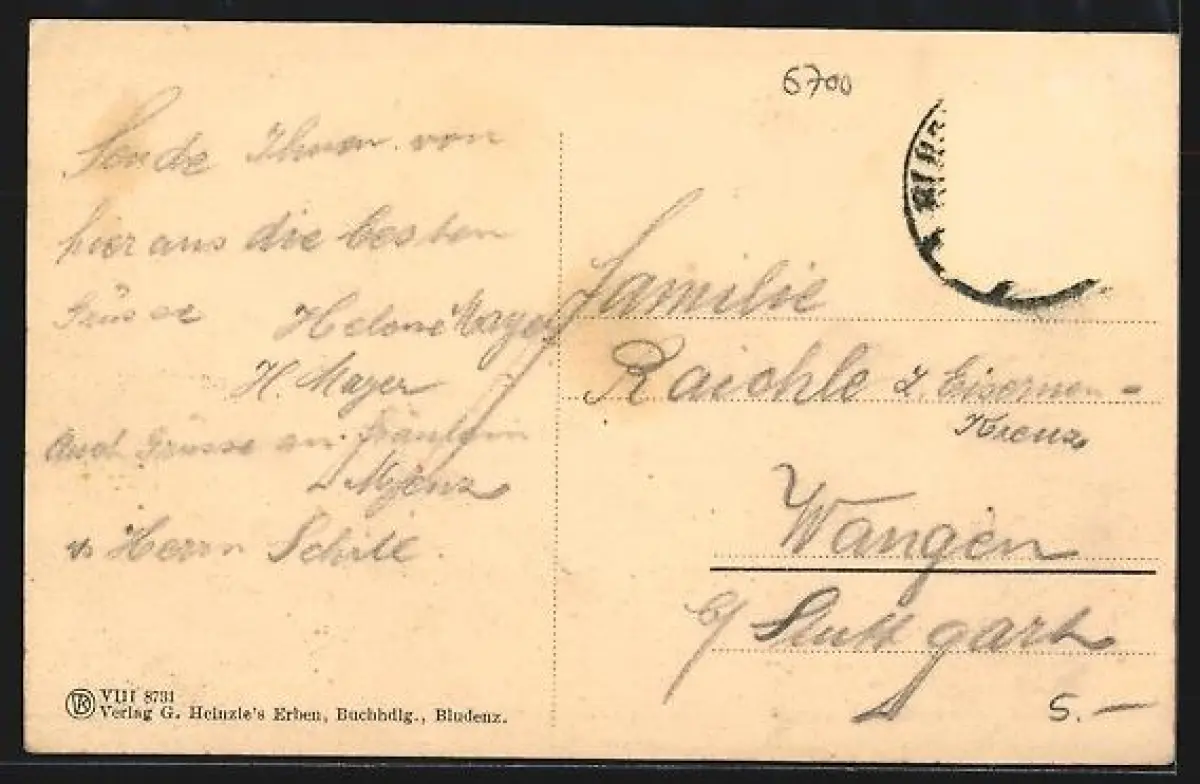 6700
Sende Ihnen von
hier aus die besten
Grüsse Helene Mayer
H. Mayer
Auch Grüsse an Fräulein
Herrn
Familie
Raichle z. Eisernen-
Kreuz
Wangen
b/ Stuttgart
5.-
VIII 8731
Verlag G. Heinzle's Erben, Buchhdlg., Bludenz.